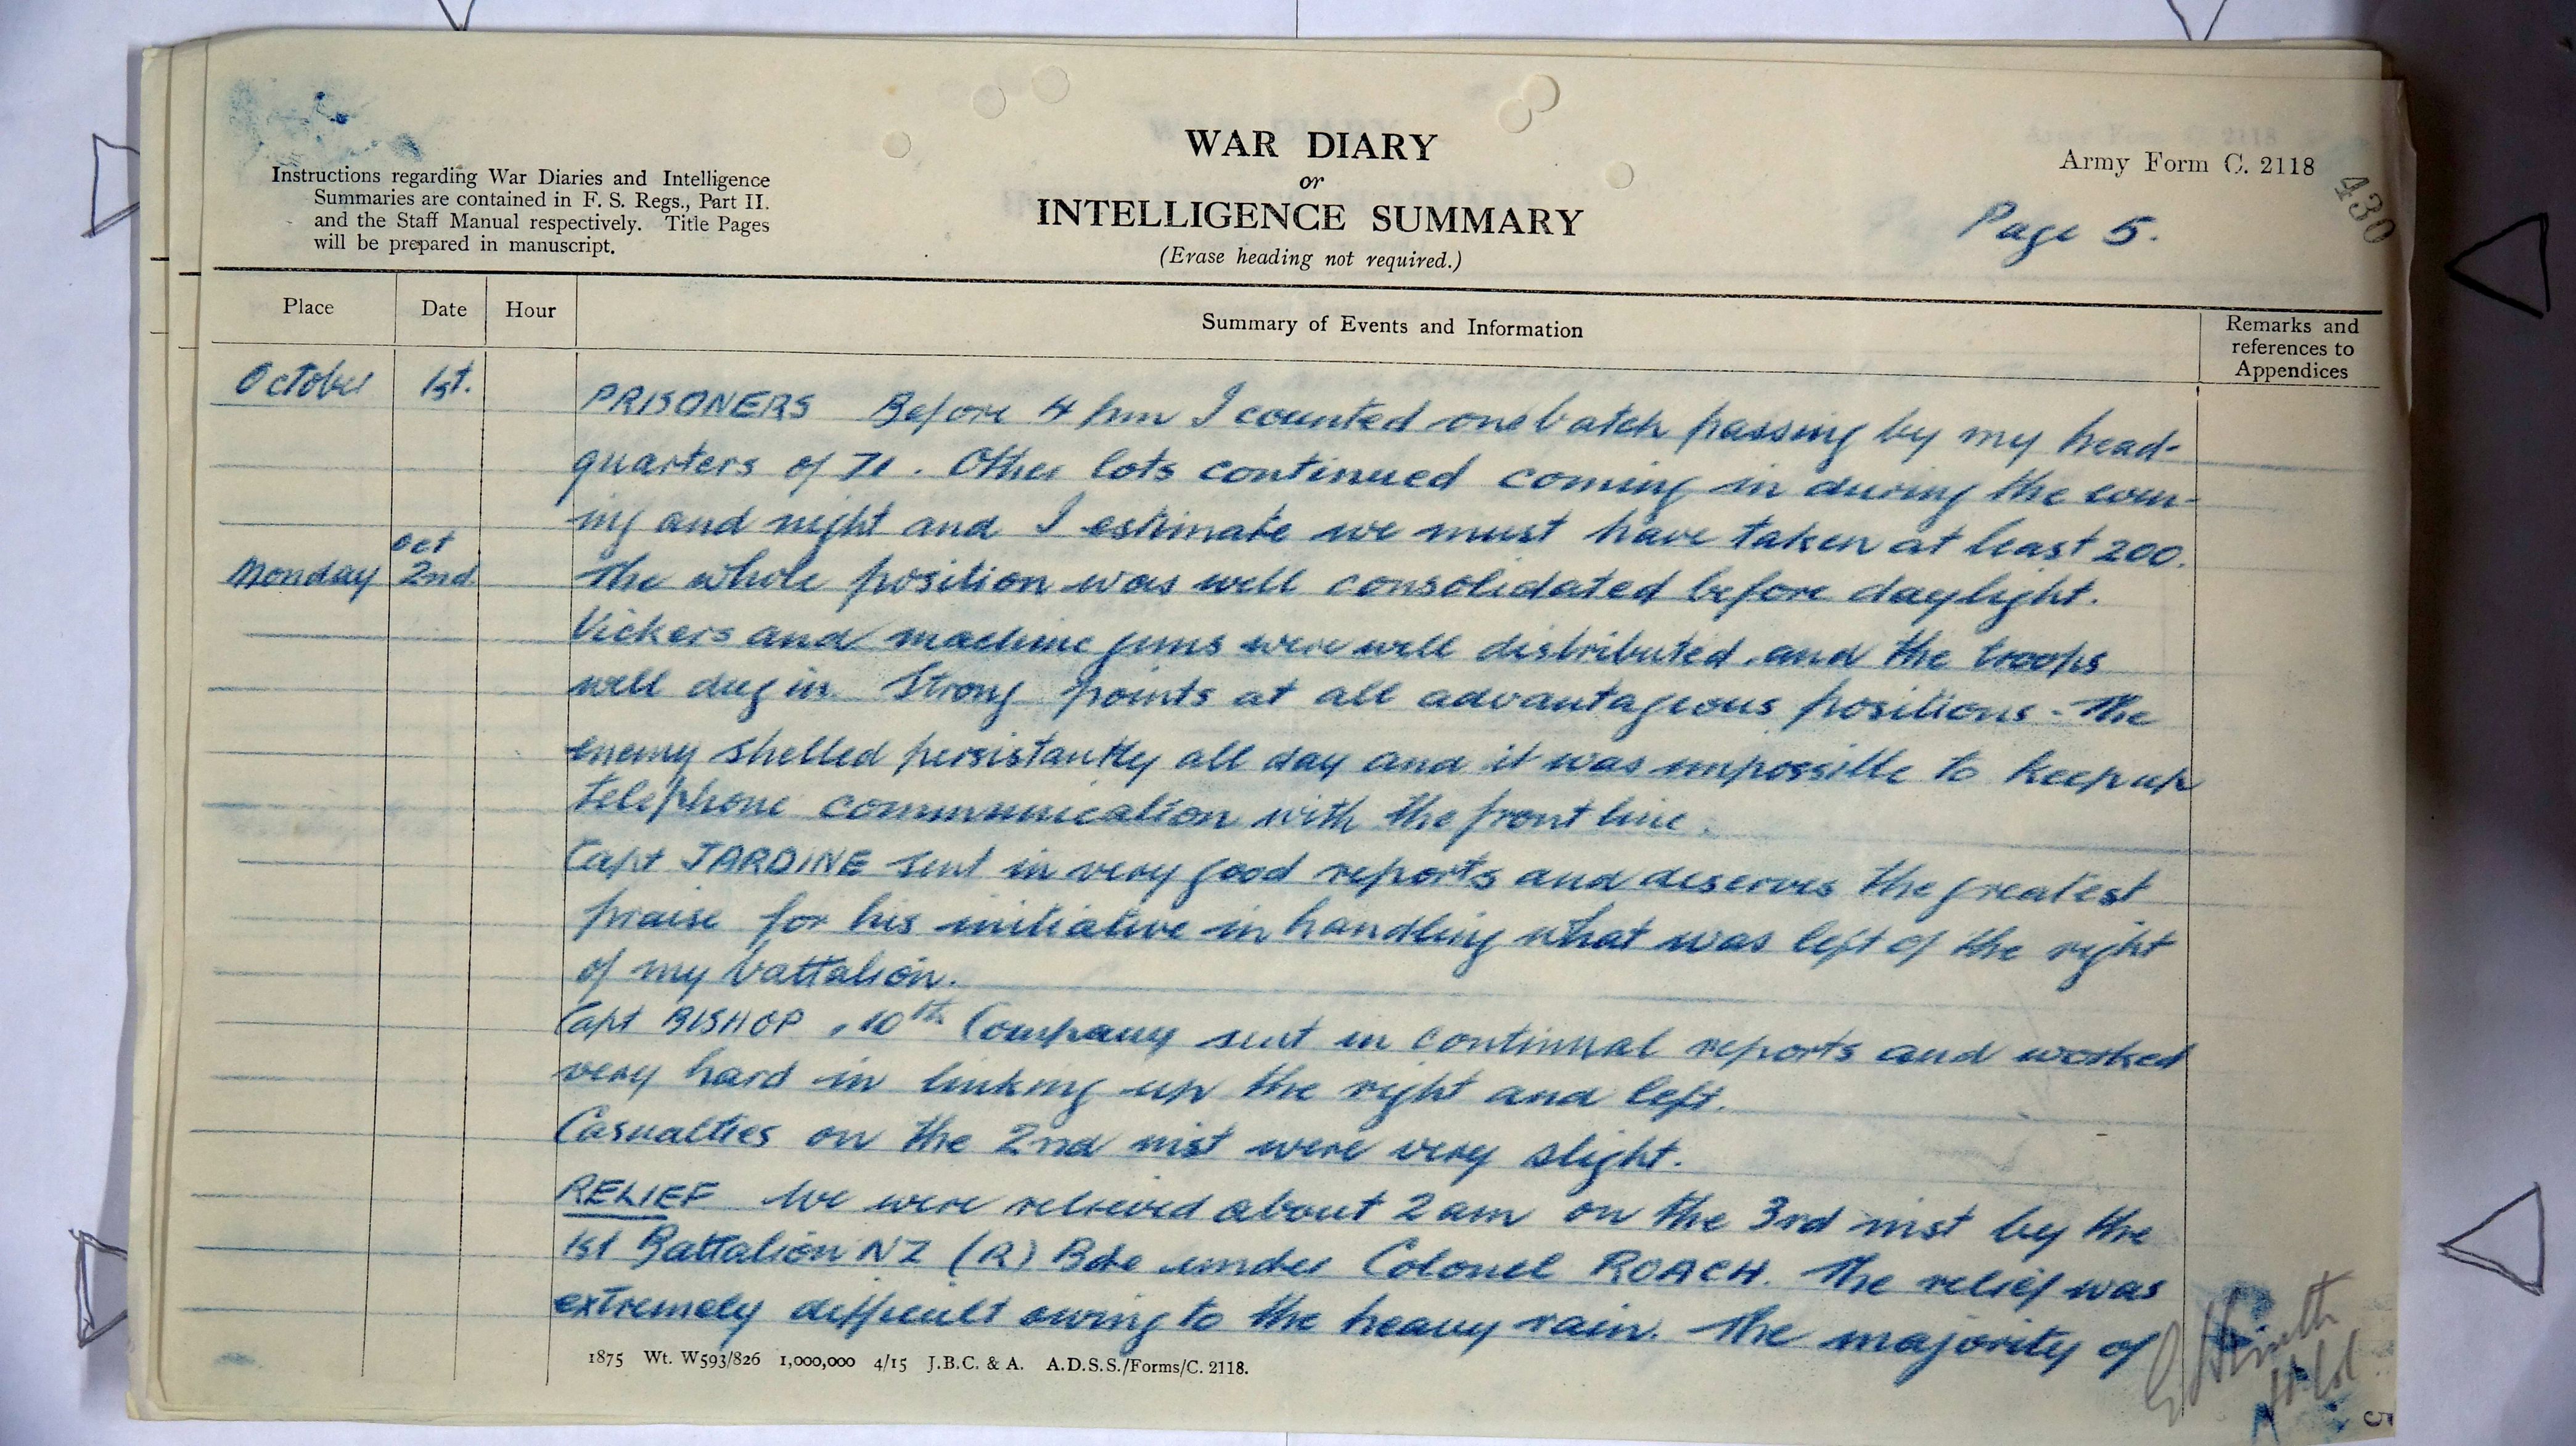 Instructions regarding War Diaries and Intelligence
Summaries are contained in F. S. Regs., Part II.
and the Staff Manual respectively. Title Pages
will be prepared in manuscript.
WAR DIARY
or
INTELLIGENCE SUMMARY
(Erase heading not required.)
Army Form C. 2118
430
Page 5.
Place
Date
Hour
Summary of Events and Information
Remarks and
references to
Appendices
October 1st.
PRISONERS Before 4 pm I counted one batch passing by my head-
quarters of 71. Other lots continued coming in during the even-
ing and night and I estimate we must have taken at least 200.
Monday Oct 2nd The whole position was well consolidated before daylight.
Vickers and machine guns were well distributed and the troops
well dug in. Strong points at all advantageous positions. The
enemy shelled persistantly all day and it was impossible to keep up
telephone communication with the front line.
Capt JARDINE sent in very good reports and deserves the greatest
praise for his initiative in handling what was left of the right
of my battalion.
Capt BISHOP, 10th Company sent in continual reports and worked
very hard in linking up the right and left.
Casualties on the 2nd inst were very slight.
RELIEF We were relieved about 2 am on the 3rd inst by the
1st Battalion NZ (R) Bde under Colonel ROACH. The relief was
extremely difficult owing to the heavy rain. The majority of
1875 Wt. W593/826 1,000,000 4/15 J.B.C. & A. A.D.S.S./Forms/C. 2118.
Smith
Lt. Col
5